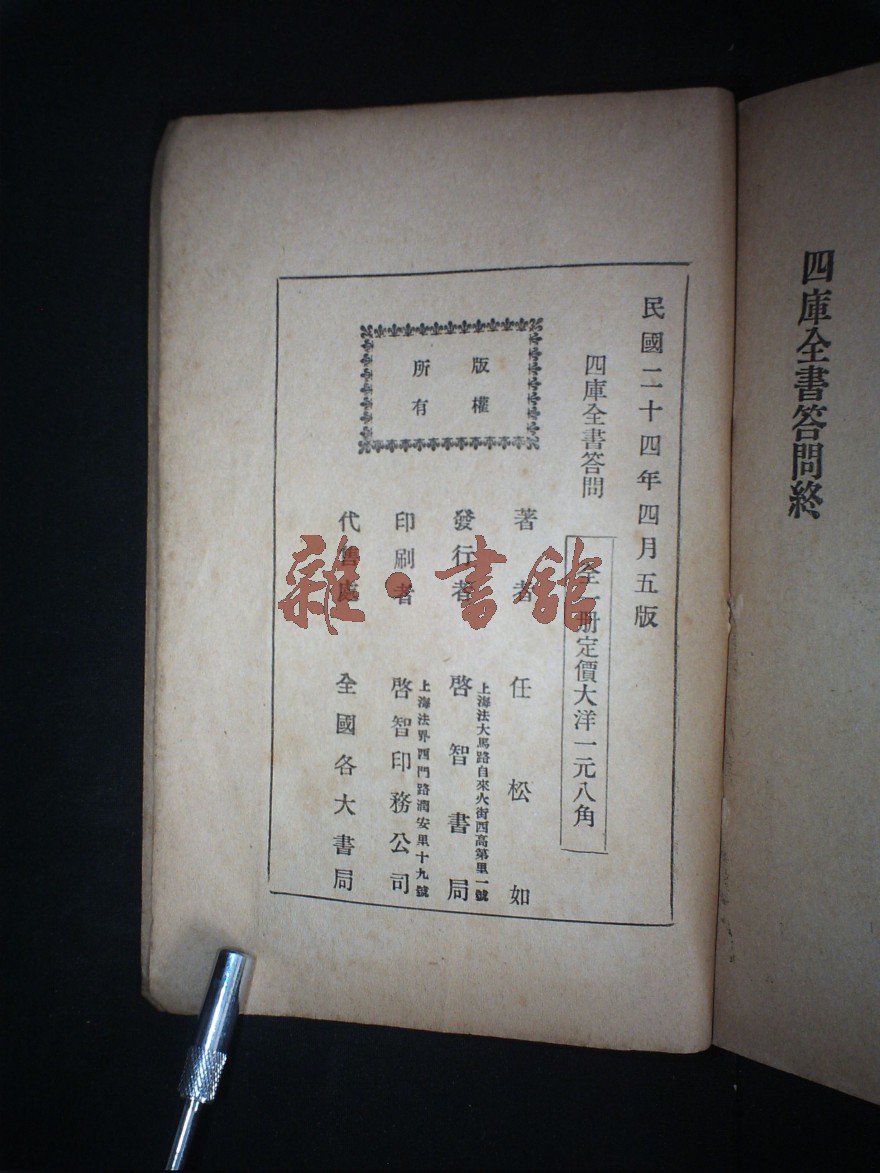 四庫全書答問終
民國二十四年四月五版
四庫全書答問
全一册定價大洋一元八角
版權
所有
著者 任松如
上海法大馬路自來火街西高第里一號
發行者 啓智書局
上海法界西門路潤安里十九號
印刷者 啓智印務公司
代售處 全國各大書局
雜·書館